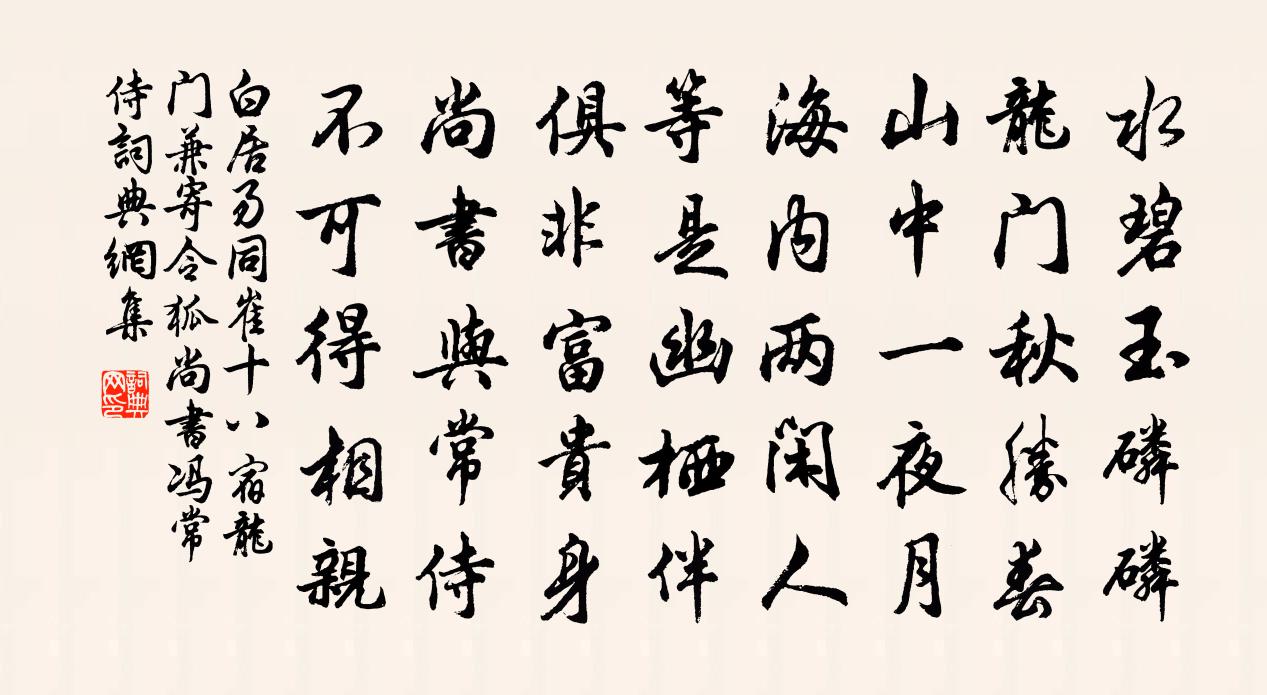 水碧玉磷磷
龍门秋勝春
山中一夜月
海内两闲人
等是幽栖伴
俱非富貴身
尚書與常侍
不可得相親
白居易同崔十八宿龍
门兼寄令狐尚書冯常
侍詞典網集
詞典
网印